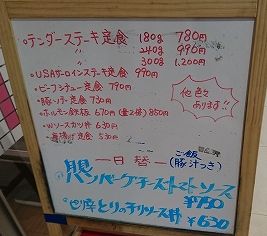 ◦テンダーステーキ定食 180g 780円
240g 990円
300g 1,200円
◦USAサーロインステーキ定食 990円
◦ビーフシチュー定食 790円
◦豚ソテー定食 730円
◦ホルモン鉄板 670円 (量2倍) 850円
◦Wソースカツ丼 630円
◦唐揚げ定食 530円
他色々
あります!!
ー日替ー
ご飯
(豚汁つき)
ハンバーグチーズトマトソース
¥750
◦ピリ辛とりのチリソース丼 ¥630